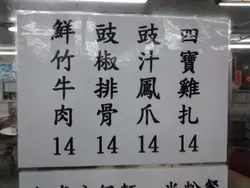 四寶雞扎 14
豉汁鳳爪 14
豉椒排骨 14
鮮竹牛肉 14